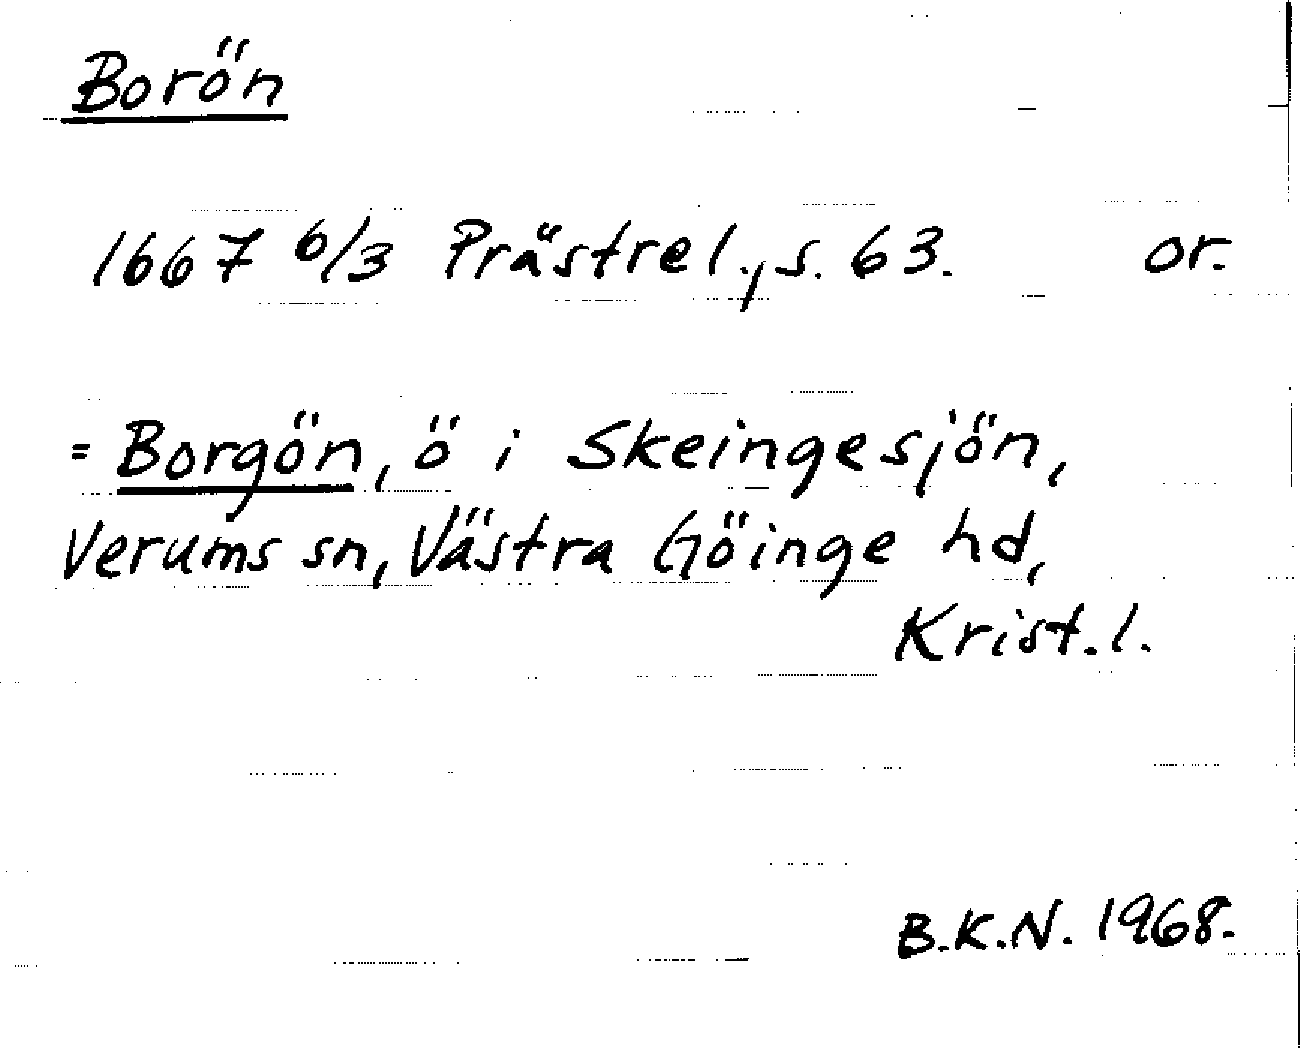 Borön
1667 6/3 Prästrel., s. 63. or.
= Borgön, ö i Skeingesjön,
Verums sn, Västra Göinge hd,
Krist. l.
B.K.N. 1968.